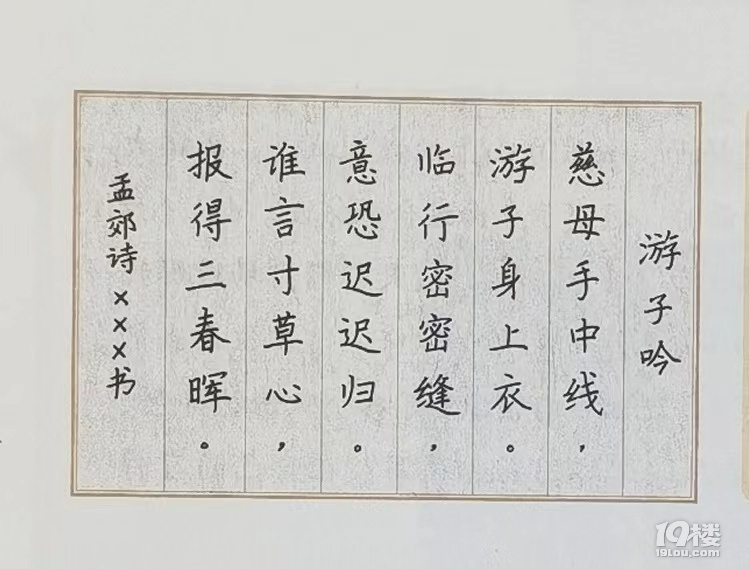 游子吟
慈母手中线，
游子身上衣。
临行密密缝，
意恐迟迟归。
谁言寸草心，
报得三春晖。
孟郊诗×××书
19楼
19lou.com